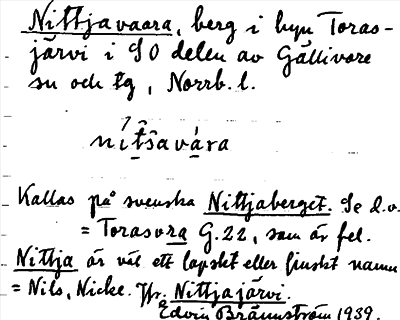 Nittjavaara, berg i byn Toras-
järvi i SO delen av Gällivare
sn och tg, Norrb. l.
nítšavára
Kallas på svenska Nittjaberget. Se d.o.
= Torasvra G.22, som är fel.
Nittja är väl ett lapskt eller finskt namn
= Nils, Nicke. Jfr. Nittjajärvi.
Edvin Brännström 1939.